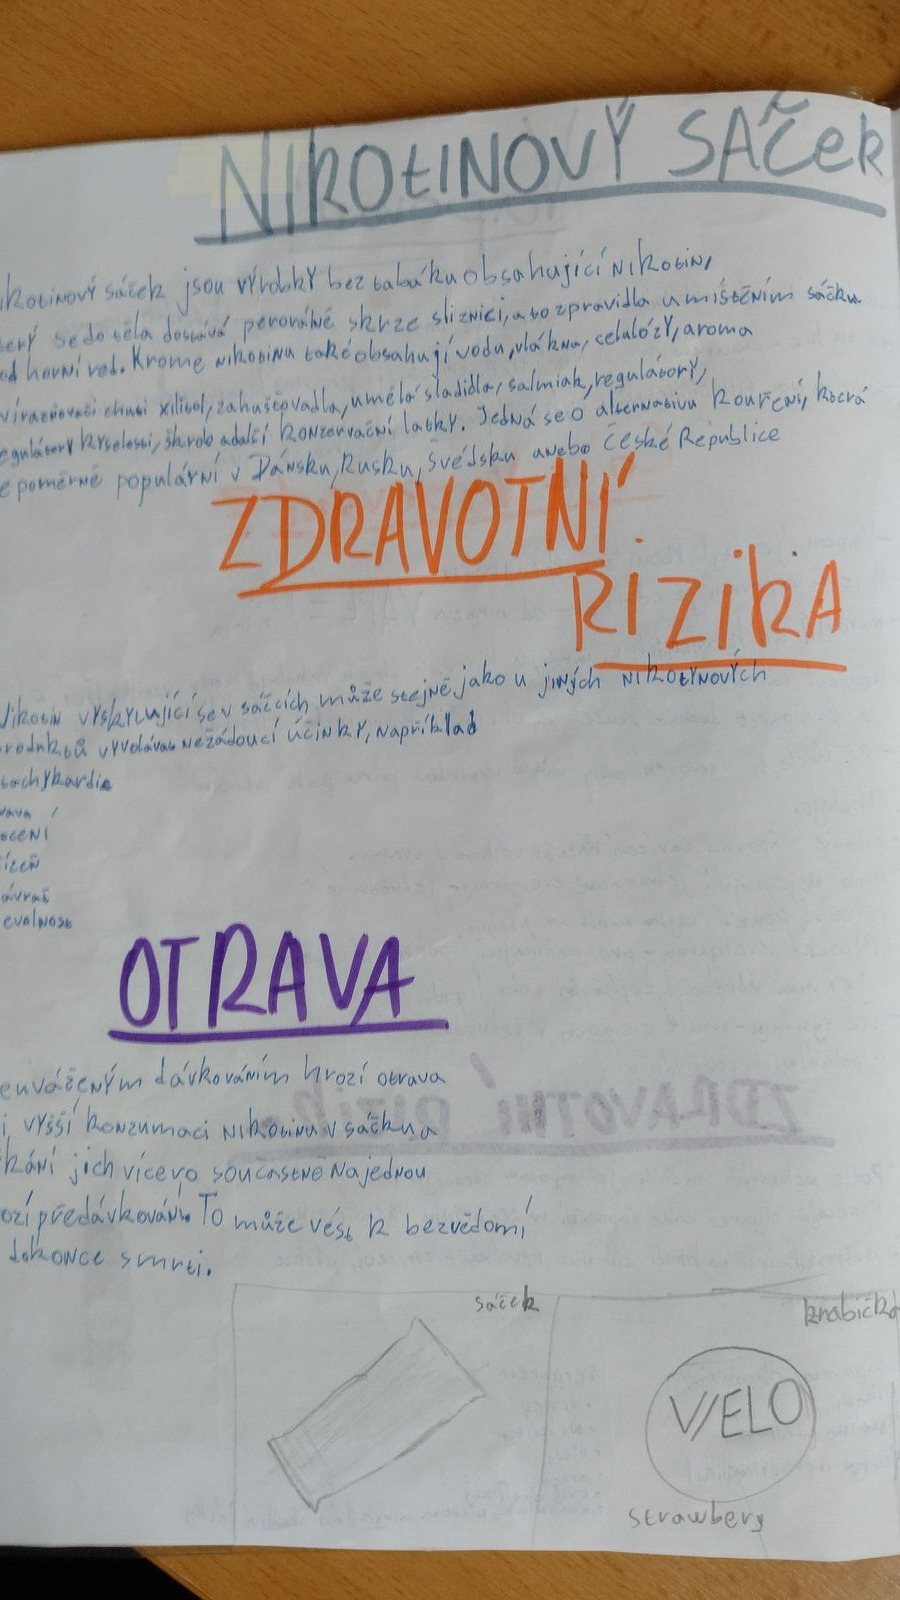 NIKOtINOVÝ SÁČek
ikotinový sáček jsou výrobky bez tabáku obsahující Nikotin,
terý se do těla dostává perorálně skrze sliznici, a to zpravidla umístěním sáčku
od horní ret. Krome nikotinu také obsahují vodu, vlákna, celulózy, aroma
chuti xilitol, zahušťovadla, umělá sladidla, salmiak, regulátory,
egulátory kyselosti, škrob a další konzervační latky. Jedná se o alternativu kouření, která
e poměrně populární v Dánsku, Rusku, Švédsku anebo České Republice
ZDRAVOTNÍ
RIZIKA
Nikotin vyskytující se v sáčcích může stejně jako u jiných nikotynových
roduktů vyvolávat nežádoucí účinky, například
tachykardie
ocení
ízeň
ávrať
evolnost
OTRAVA
euváženým dávkováním hrozí otrava
i vyšší konzumaci nikotinu v sáčku a
kání jich vícevo současně najednou
ozí předávkování. To může vést k bezvědomí
dokonce smrti.
sáček
krabička
VELO
strawbery